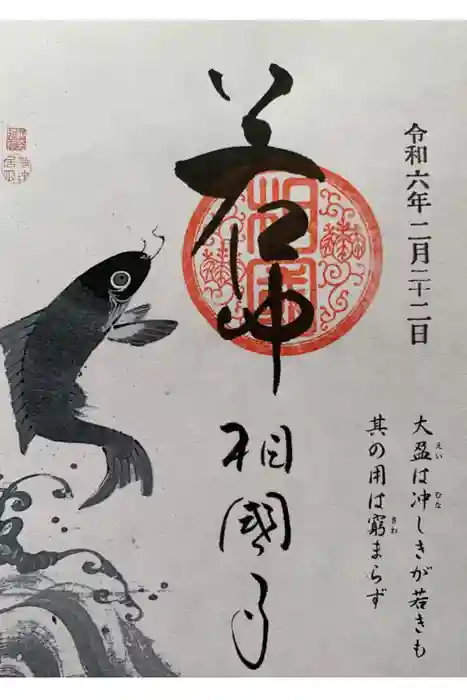 令和六年二月二十二日
大盈は冲しきが若きも
えい
むな
其の用は窮まらず
きわ
若冲
相國
相國寺